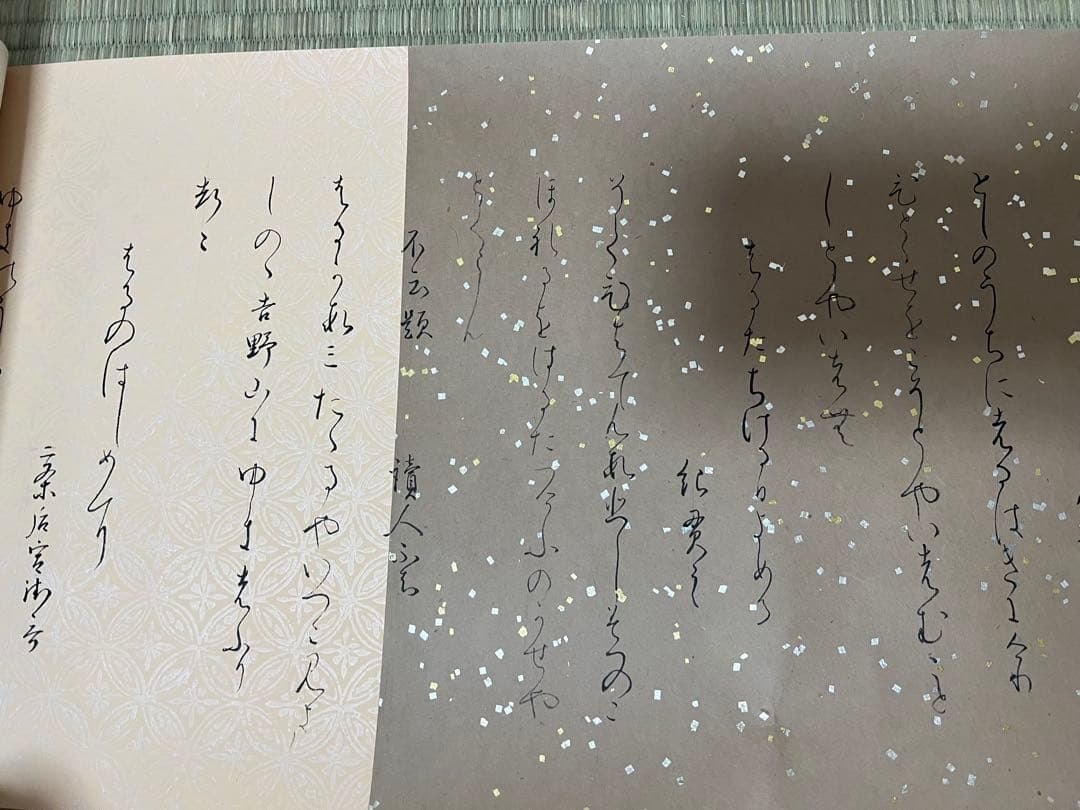 としのうちにはるはきにけり
ひとゝせをこそとやいはむこと
しとやいはむ
はるたちける日よめる
紀貫之
そてひちてむすひしみつのこ
ほれるをはるたつけふのかせや
とくらん
不知題　讀人不知
はるかすみたてるやいつこ見よ
しのゝ吉野山にゆきはふり
つゝ
はるのはしめ
二条后宮御哥
ゆきのう